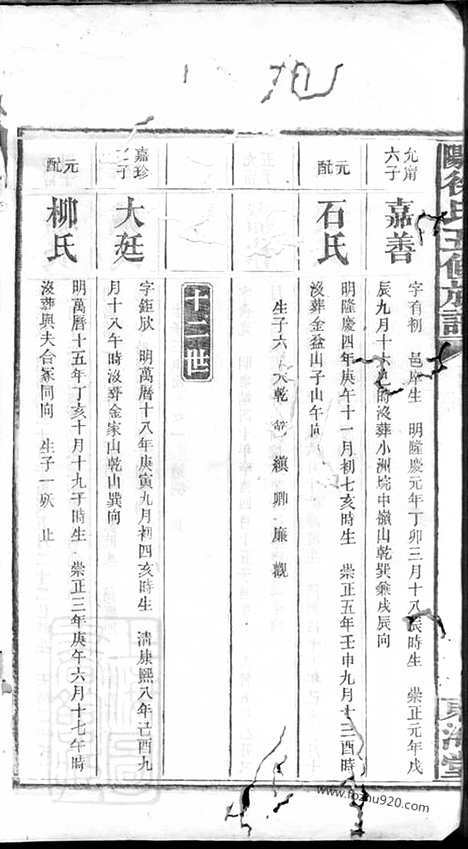 允甯
六子
嘉善
字有初　邑庠生　明隆慶元年丁卯三月十八辰時生　崇正元年戊
辰九月十六時沒葬小洲垸中嶺山乾巽兼戌辰向
元配
石氏
明隆慶四年庚午十一月初七亥時生　崇正五年壬申九月十三酉時
沒葬金益山子山午向
生子六　大乾　縝　卿　廉　觀
十二世
嘉珍
子
大廷
字鉅欣　明萬曆十八年庚寅九月初四亥時生　清康熙八年己酉九
月十八午時沒葬金家山乾山巽向
元配
柳氏
明萬曆十五年丁亥十月十九午時生　崇正三年庚午六月十七午時
沒葬與夫合冢同向　生子一殀　止
徐氏五修族譜
東海堂
www.fozhu920.com